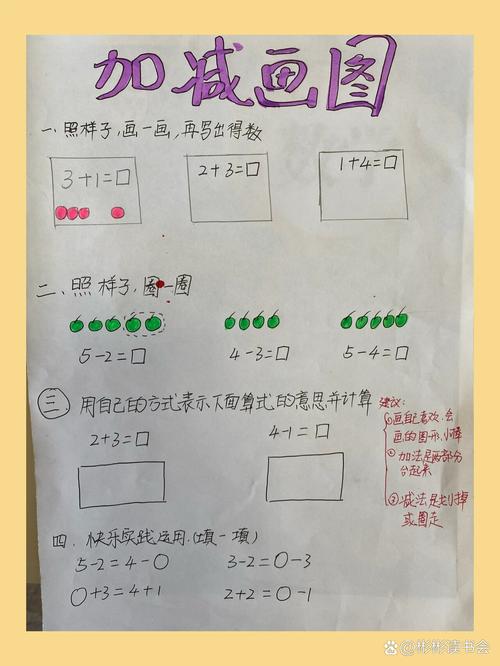 加减画图
一、照样子,画一画,再写出得数
3+1=□
2+3=□
1+4=□
二、照样子,圈一圈
5-2=□
4-3=□
5-4=□
三、用自己的方式表示下面算式的意思并计算
2+3=□
4-1=□
建议:
①画自己喜欢、会
画的图形,小棒
②加法是两部分
合起来
③减法是划掉
或圈走
四、快乐实践运用.(填一填)
5-2=4-○
3-2=○-3
○+3=4+1
2+2=○-1
@彬彬读书会